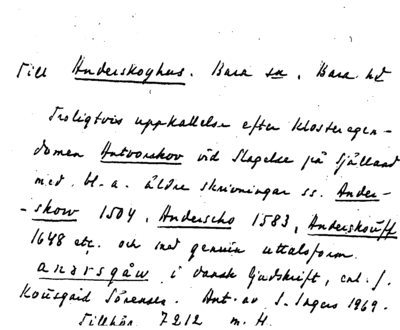 Till Anderskoghus. Bara sn, Bara hd
Troligtvis uppkallelse efter klosteregen-
domen Antvorskov vid Slagelse på Själland
med bl.a. äldre skrivningar ss. Ander-
-skow 1504, Anderscho 1583, Anderskouff
1648 etc. och med genuin uttalsform
anarsgåw i dansk ljudskrift, enl. J.
Kousgård Sörensen. Ant. av I. Ingers 1969.
Tillhör 7212 m. H.